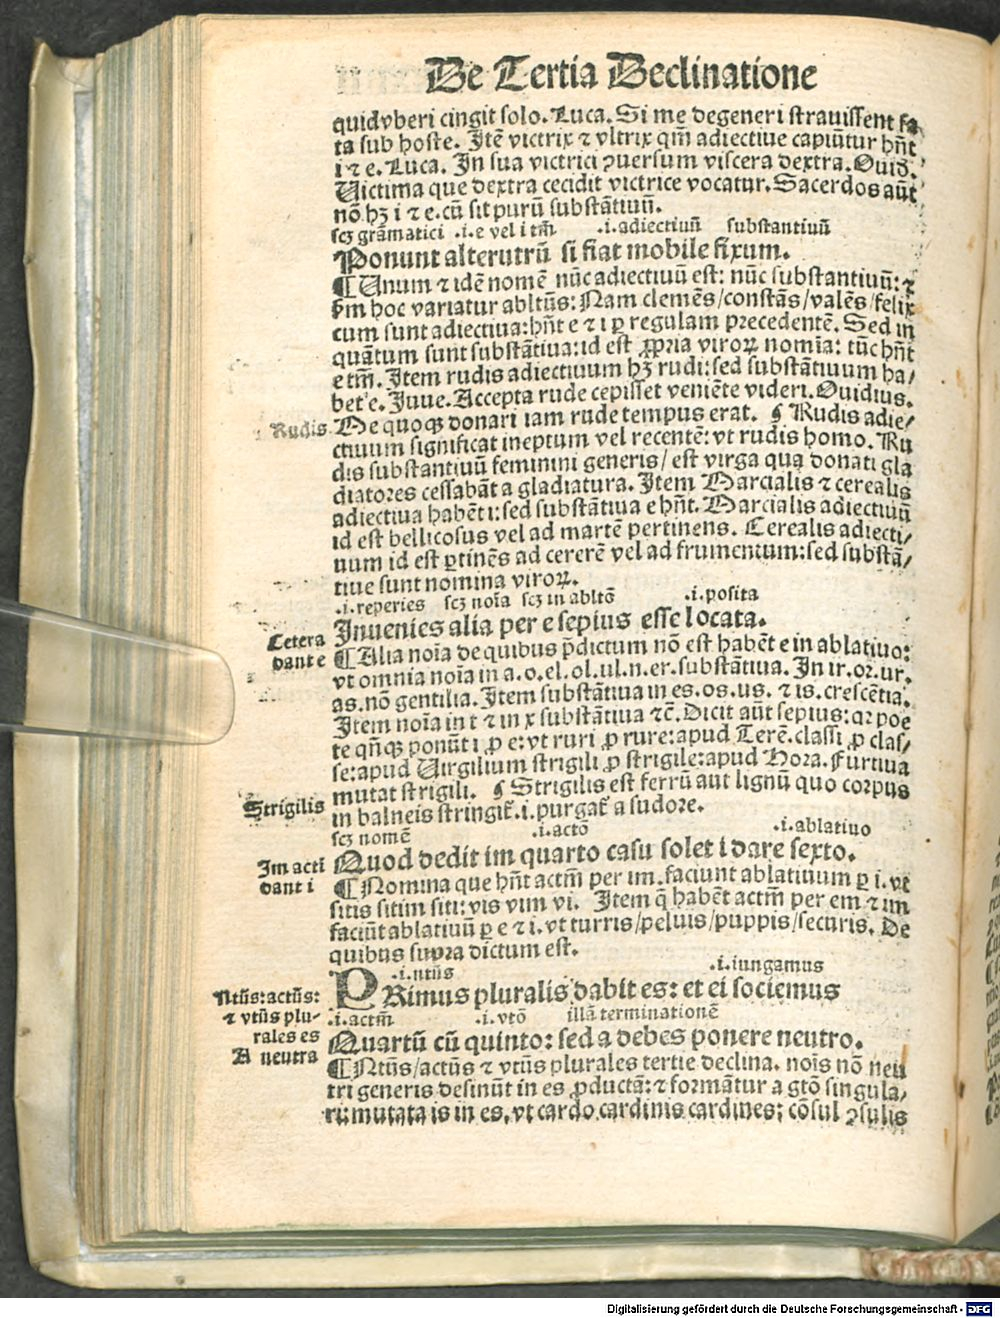 De Tertia Declinatione
quid vberi cingit solo. Luca. Si me degeneri strauissent fa
ta sub hoste. Itē victrix ⁊ vltrix qm̄ adiectiue capiūtur hn̄t
i ⁊ e. Luca. In sua victrici ꝯuersum viscera dextra. Ouid.
Uictima que dextra cecidit victrice vocatur. Sacerdos aūt
nō hꝫ i ⁊ e. cū sit purū substātiuū.
scꝫ grāmatici .i. e vel i tm̄ .i. adiectiuū substantiuū
Ponunt alterutrū si fiat mobile fixum.
¶ Unum ⁊ idē nomē nūc adiectiuū est: nūc substantiuū: ⁊
ẜm hoc variatur abltūs: Nam clemēs/constās/valēs/felix
cum sunt adiectiua: hn̄t e ⁊ i ꝑ regulam precedentē. Sed in
quātum sunt substātiua: id est ꝓpria viroꝝ nomīa: tūc hn̄t
e tm̄. Item rudis adiectiuum hꝫ rudi: sed substātiuum ha/
bet e. Juue. Accepta rude cepisset veniēte videri. Ouidius.
Rudis. Me quoqꝫ donari iam rude tempus erat. ¶ Rudis adie/
ctiuum significat ineptum vel recentē: vt rudis homo. Ru
dis substantiuū feminini generis/ est virga qua donati gla
diatores cessabāt a gladiatura. Item Marcialis ⁊ cerealis
adiectiua habēt i: sed substātiua e hn̄t. Marcialis adiectiuū
id est bellicosus vel ad martē pertinens. Cerealis adiecti/
uum id est ꝑtinēs ad cererē vel ad frumentum: sed substā/
tiue sunt nomina viroꝝ.
.i. reperies scꝫ noīa scꝫ in abltō .i. posita
Inuenies alia per e sepius esse locata.
Cetera
dant e
¶ Alia noīa de quibus p̄dictum nō est habēt e in ablatiuo:
vt omnia noīa in a. o. el. ol. ul. n. er. substātiua. In ir. or. ur.
as. nō gentilia. Item substātiua in es. os. us. ⁊ is. crescētia.
Item noīa in t ⁊ in x substātiua ⁊c̄. Dicit aūt sepius: qꝛ poe
te qn̄qꝫ ponūt i ꝓ e: vt ruri ꝓ rure: apud Terē. classi ꝓ clas/
se: apud Uirgilium strigili ꝓ strigile: apud Hora. Furtiua
mutat strigili. ¶ Strigilis est ferrū aut lignū quo corpus
Strigilis
in balneis stringit̄. i. purgat̄ a sudore.
scꝫ nomē .i. actō .i. ablatiuo
Quod dedit im quarto casu solet i dare sexto.
Im acti
dant i
¶ Nomina que hn̄t actm̄ per im. faciunt ablatiuum ꝑ i. vt
sitis sitim siti: vis vim vi. Item q̄ habēt actm̄ per em ⁊ im
faciūt ablatiuū ꝑ e ⁊ i. vt turris/peluis/puppis/securis. De
quibus supra dictum est.
.i. ntūs .i. iungamus
PRimus pluralis dabit es: et ei sociemus
Ntūs: actūs:
⁊ vtūs plu-
rales es
A neutra
.i. actm̄ .i. vtō illā terminationē
Quartū cū quinto: sed a debes ponere neutro.
¶ Ntūs/actūs ⁊ vtūs plurales tertie declina. noīs nō neu
tri generis desinūt in es ꝓductā: ⁊ formātur a gtō singula/
ri: mutata is in es. vt cardo. cardinis. cardines; cōsul ꝯsulis
Digitalisierung gefördert durch die Deutsche Forschungsgemeinschaft - DFG